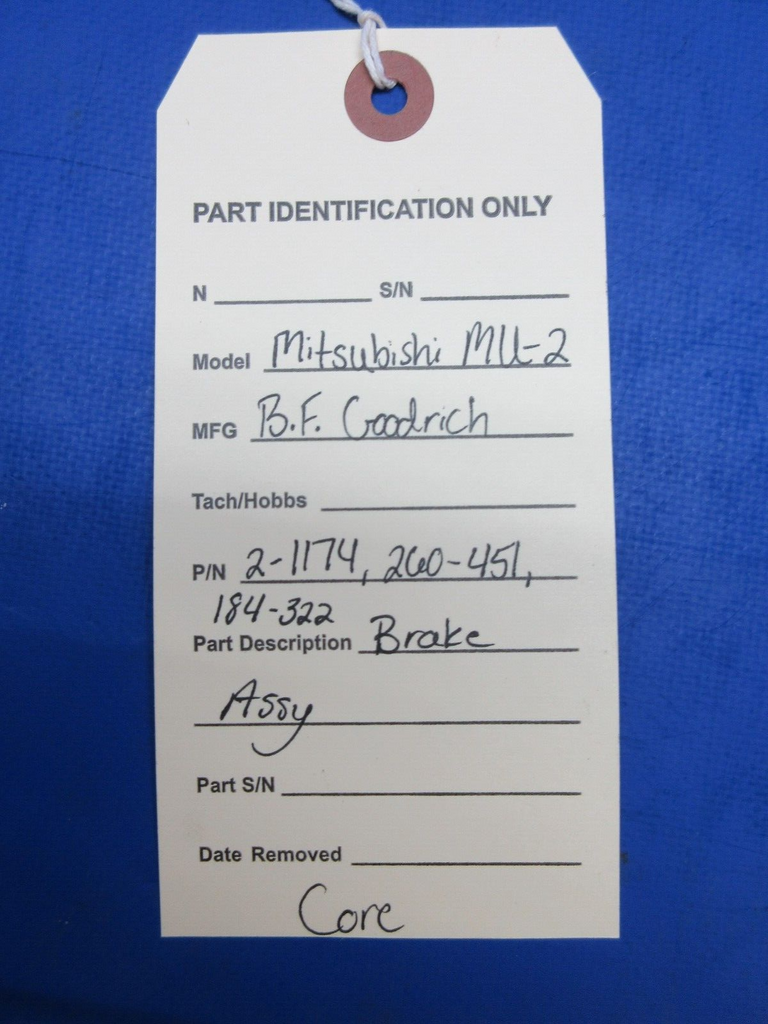 PART IDENTIFICATION ONLY
N S/N
Model Mitsubishi MU-2
MFG B.F. Goodrich
Tach/Hobbs
P/N 2-1174, 260-451,
184-322
Part Description Brake
Assy
Part S/N
Date Removed
Core